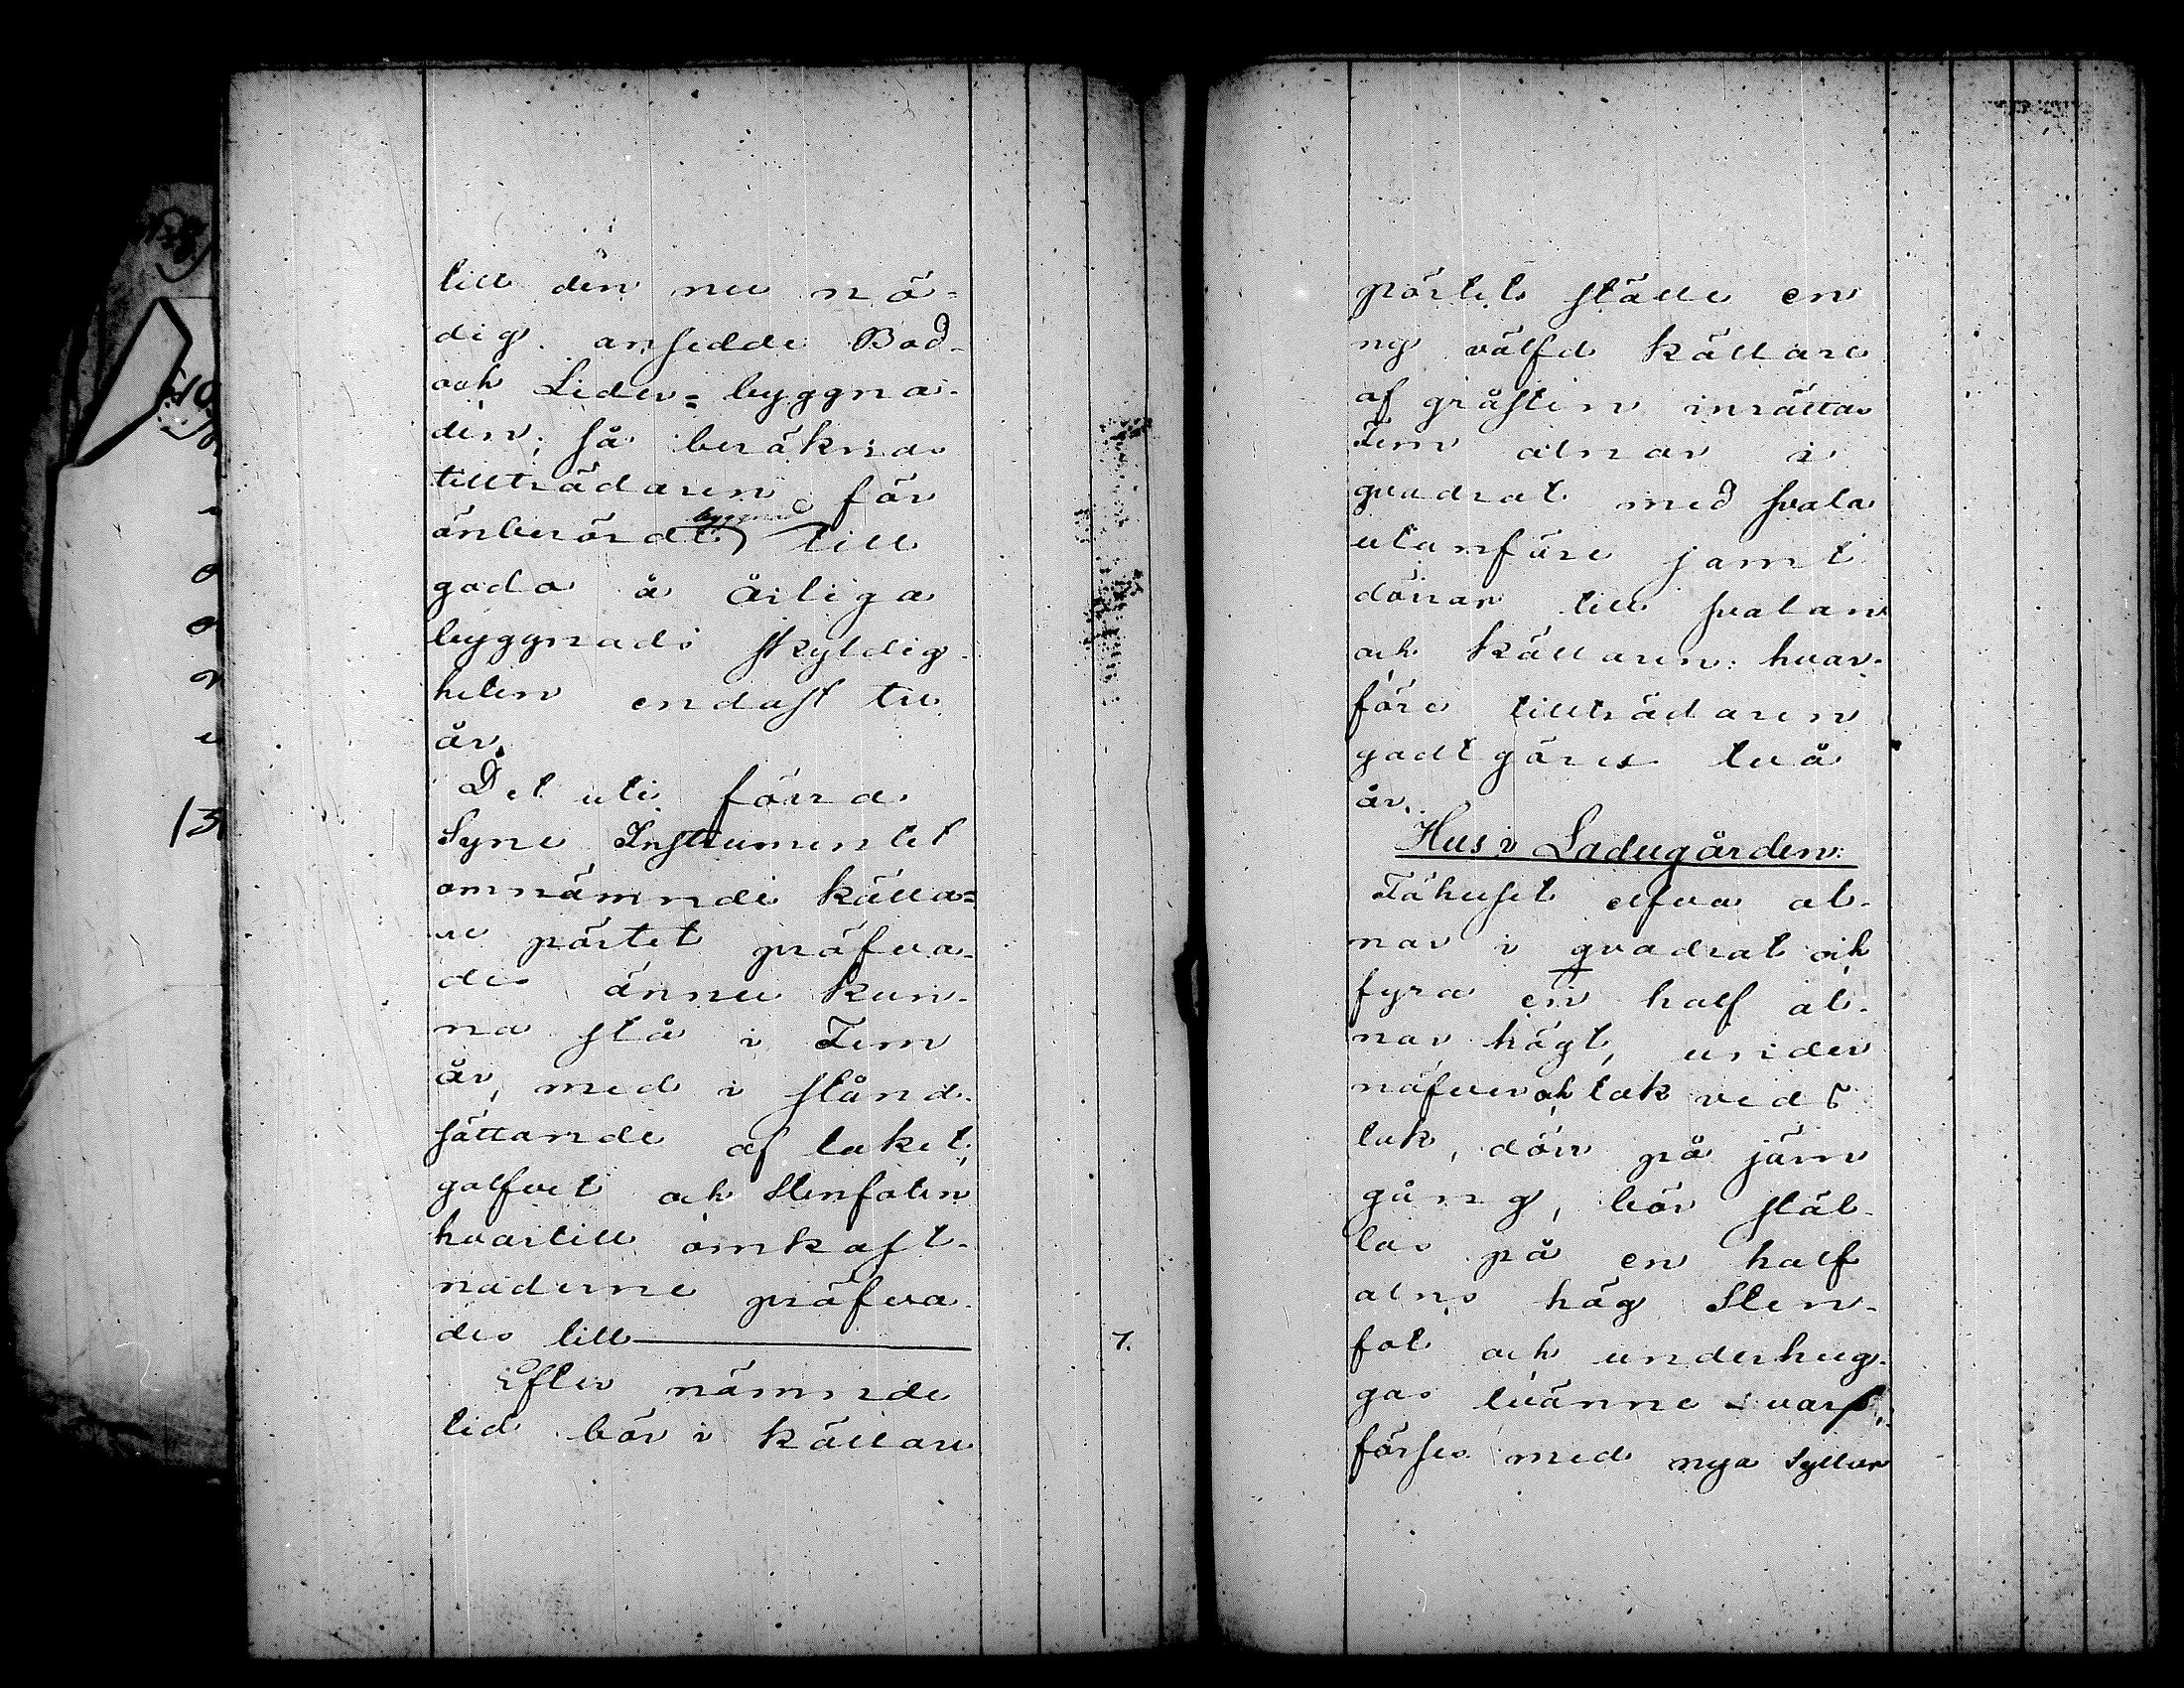 till den nu nö-
dig ansedde Bod-
och Lider=byggna-
den; så beräknas
tillträdaren för
ånberördt byggnad till
godo å årliga
byggnads skyldig-
heten endast tre
år.
Det uti förra
Syne Instrumentet
omnämnde källa=
re pörtet pröfva-
des ännu kun-
na stå i Fem
år, med i stånd-
sättande af taket,
golfvet och Stenfoten
hvartill omkost-
naderne pröfva-
des till 7.
Efter nämnde
tid bör i källare
pörtets ställe en
ny välfd källare
af gråsten inrättas
Fem alnar i
qvadrat med svala
utanföre jemt
dörrar till svalan
och källaren: hvar-
före tillträdaren
godtgöres två
år.
Hus i Ladugården:
Fähuset elfva al-
nar i qvadrat och
fyra en half al-
nar högt, under
näfver och tak ved 5
tak, dörr på järn
gång, bör stäl-
las på en half
alns hög Sten-
fot och underhug-
gas tvänne hvarf,
förses med nya Syllar
13